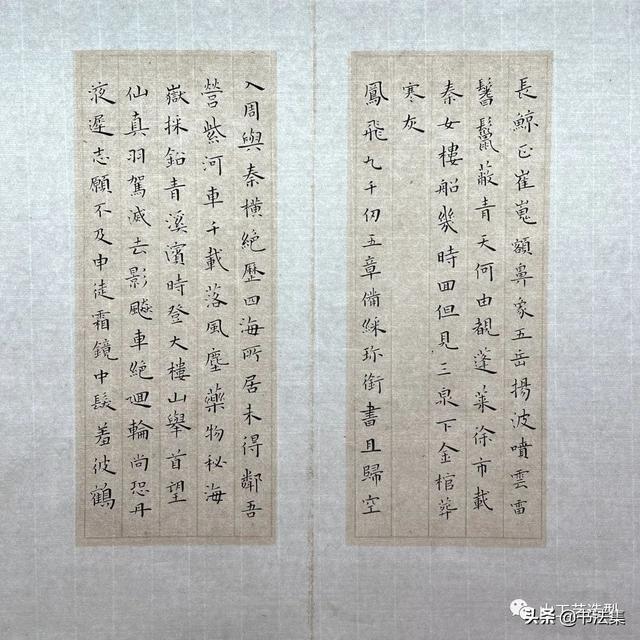 長鯨正崔嵬額鼻象五岳揚波噴雲雷
鬐鬣蔽青天何由覩蓬萊徐市載
秦女樓船幾時回但見三泉下金棺葬
寒灰
鳳飛九千仞五章備綵珍銜書且歸空
入周與秦橫絕歷四海所居未得鄰吾
營紫河車千載落風塵藥物秘海
嶽採鉛青溪濱時登大樓山舉首望
仙真羽駕滅去影飈車絕迴輪尚恐丹
液遲志願不及申徒霜鏡中髮羞彼鶴
头条 @书法集